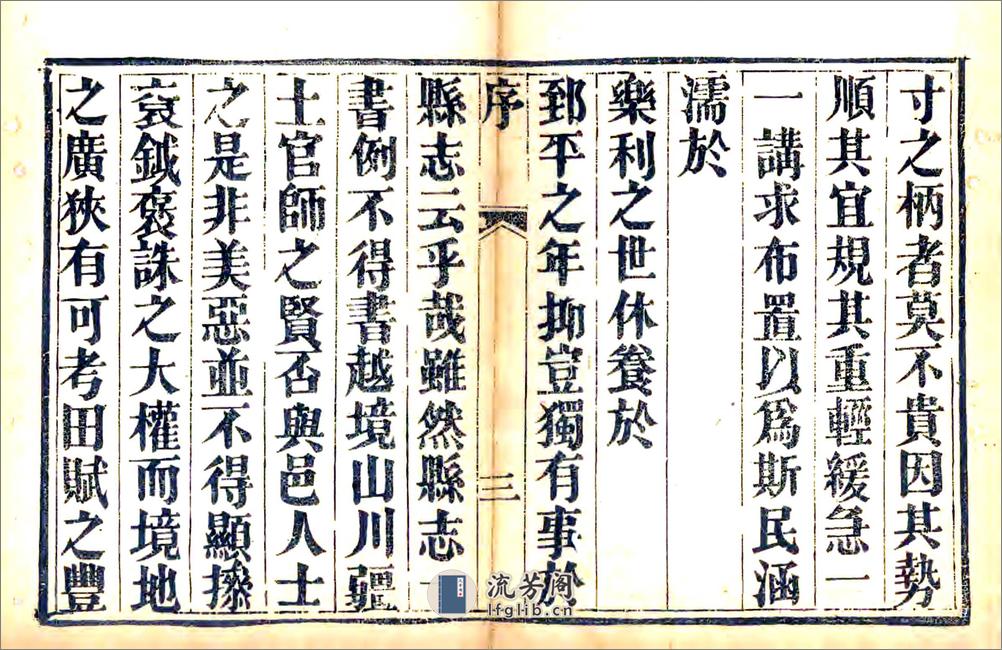 寸之柄者莫不貴因其勢
順其宜規其重輕緩急一
一講求布置以爲斯民涵
濡於
樂利之世休養於
郅平之年抑豈獨有事於
序
三
縣志云乎哉雖然縣志一
書例不得書越境山川疆
土官師之賢否與邑人士
之是非美惡並不得顯操
袞鉞褒誅之大權而境地
之廣狹有可考田賦之豐
流芳阁
lfglib.cn